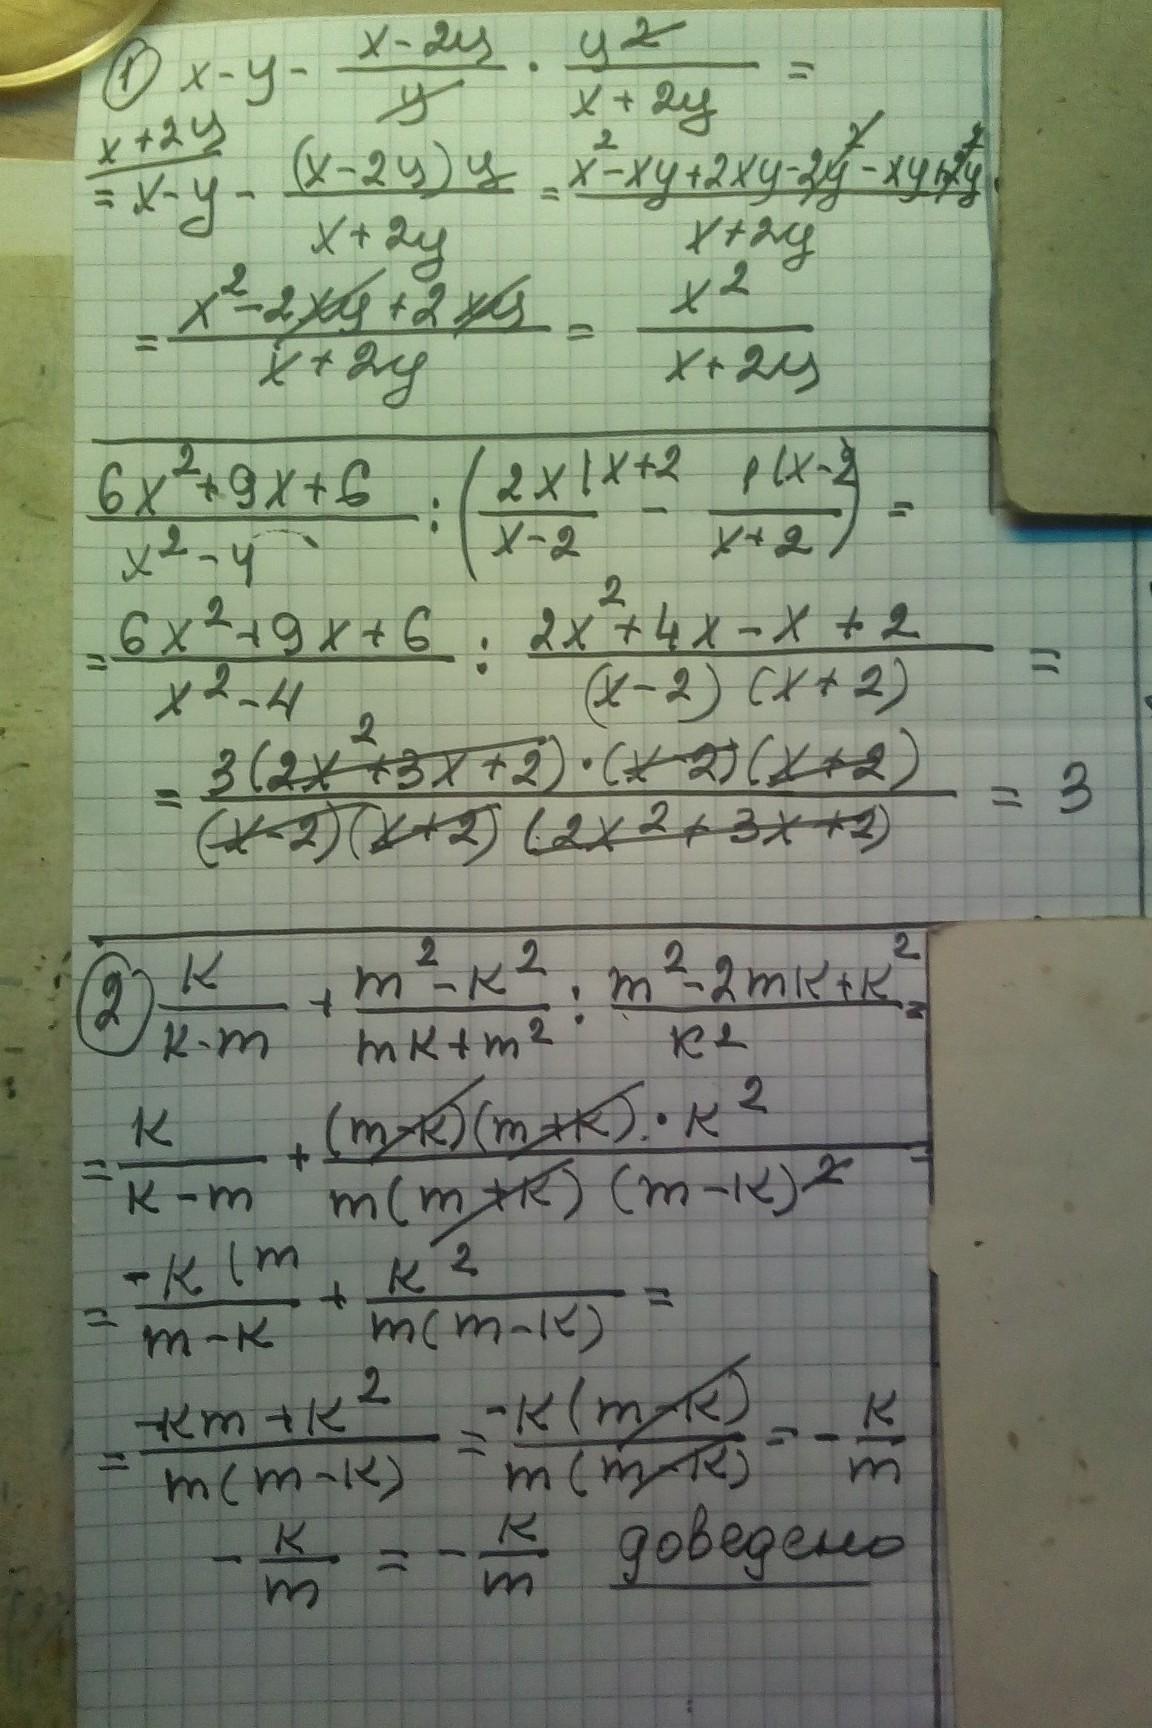 ① x-y - (x-2y)/y · y²/(x+2y) =
x+2y
= x-y - (x-2y)y/(x+2y) = (x²-xy+2xy-2y²-xy+2y²)/(x+2y)
= (x²-2xy+2xy)/(x+2y) = x²/(x+2y)
(6x²+9x+6)/(x²-4) : (2x|x+2/(x-2) - 1(x-2/(x+2)) =
= (6x²+9x+6)/(x²-4) : (2x²+4x-x+2)/((x-2)(x+2)) =
= 3(2x²+3x+2)·(x-2)(x+2)/((x-2)(x+2)(2x²+3x+2)) = 3
② к/(к-m) + (m²-к²)/(mк+m²) : (m²-2mк+к²)/к² =
= к/(к-m) + (m-к)(m+к)·к²/(m(m+к)(m-к)²) =
= -к(m/(m-к) + к²/(m(m-к)) =
= (-кm+к²)/(m(m-к)) = -к(m-к)/(m(m-к)) = -к/m
-к/m = -к/m доведено